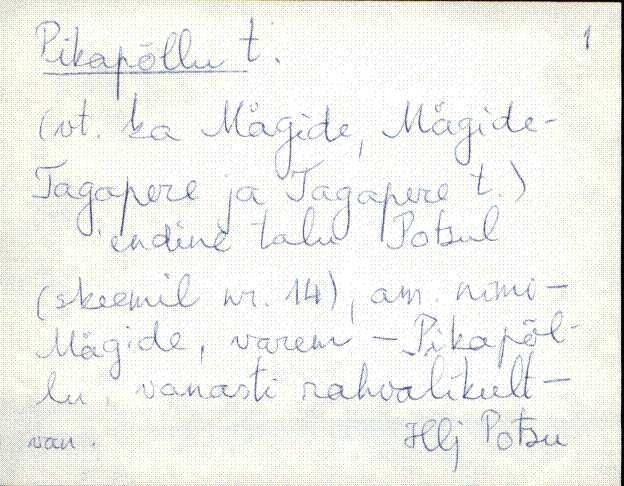 1
Pikapõllu t.
(vt. ka Mägide, Mägide-
Tagapere ja Tagapere t.)
endine talu Potsul
(skeemil nr. 14), am. nimi -
Mägide, varem - Pikapõl-
lu, vanasti rahvalikult -
van. Hlj Potsu